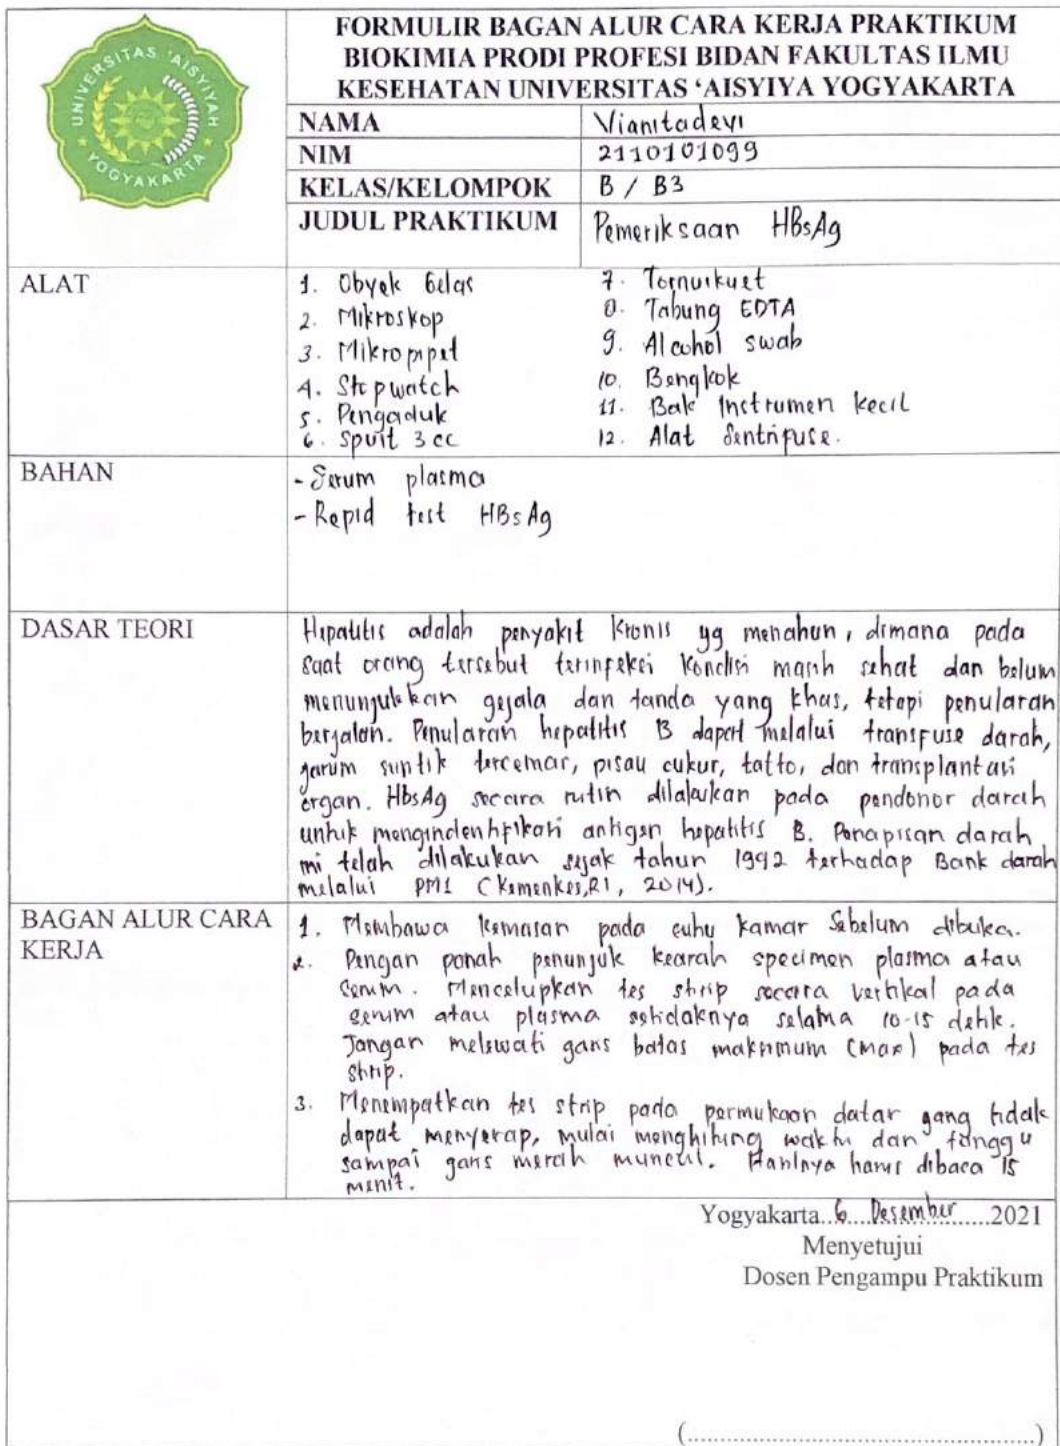 UNIVERSITAS 'AISYIYAH
YOGYAKARTA
FORMULIR BAGAN ALUR CARA KERJA PRAKTIKUM
BIOKIMIA PRODI PROFESI BIDAN FAKULTAS ILMU
KESEHATAN UNIVERSITAS ‘AISYIYA YOGYAKARTA
NAMA Vianitadevi
NIM 2110101099
KELAS/KELOMPOK B / B3
JUDUL PRAKTIKUM Pemeriksaan HBsAg
ALAT
1. Obyek Gelas
2. Mikroskop
3. Mikropipet
4. Stopwatch
5. Pengaduk
6. Spuit 3 cc
7. Tornuikuet
8. Tabung EDTA
9. Alcohol swab
10. Bengkok
11. Bak Instrumen kecil
12. Alat Sentrifuse.
BAHAN
- Serum plasma
- Rapid test HBsAg
DASAR TEORI
Hipatitis adalah penyakit kronis yg menahun, dimana pada
saat orang tersebut terinfeksi kondisi masih sehat dan belum
menunjukkan gejala dan tanda yang khas, tetapi penularan
berjalan. Penularan hepatitis B dapat melalui transfuse darah,
jarum suntik tercemar, pisau cukur, tatto, dan transplantasi
organ. HbsAg secara rutin dilakukan pada pendonor darah
untuk mengindentifikasi antigen hepatitis B. Penapisan darah
ini telah dilakukan sejak tahun 1992 terhadap Bank darah
melalui PMI (Kemenkes,RI, 2014).
BAGAN ALUR CARA
KERJA
1. Membawa kemasan pada suhu kamar Sebelum dibuka.
2. Dengan panah penunjuk kearah specimen plasma atau
serum. Mencelupkan tes strip secara vertikal pada
serum atau plasma setidaknya selama 10-15 detik.
Jangan melewati garis batas maksimum (max) pada tes
strip.
3. Menempatkan tes strip pada permukaan datar yang tidak
dapat menyerap, mulai menghitung waktu dan tunggu
sampai garis merah muncul. Hasilnya harus dibaca 15
menit.
Yogyakarta..6....Desember......2021
Menyetujui
Dosen Pengampu Praktikum
(................................................)